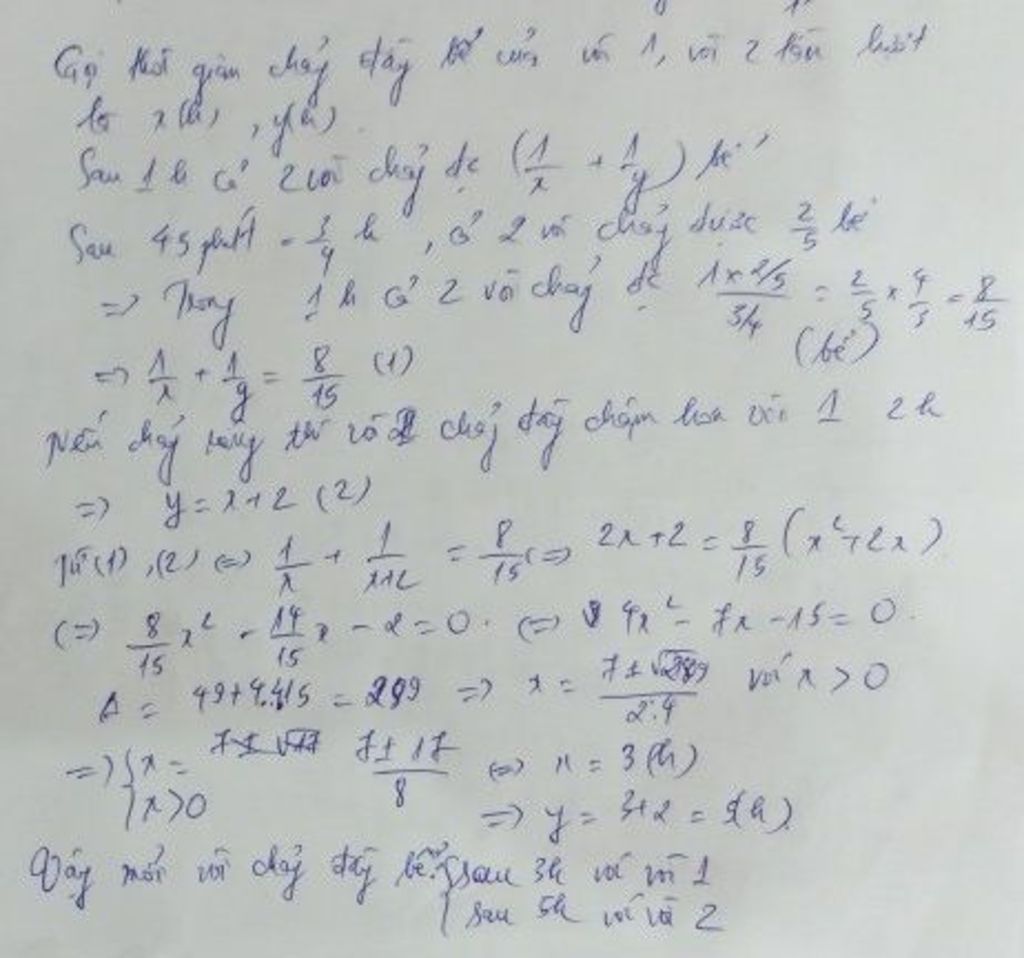 Gọi thời gian chảy đầy bể của vòi 1, vòi 2 lần lượt
là x(h), y(h).
Sau 1h cả 2 vòi chảy đc (1/x + 1/y) bể
Sau 45 phút = 3/4 h, cả 2 vòi chảy được 2/5 bể
=> Trong 1h cả 2 vòi chảy đc (1×2/5)/(3/4) = 2/5 × 4/3 = 8/15
(bể)
=> 1/x + 1/y = 8/15 (1)
Nếu chảy riêng thì vòi 2 chảy đầy chậm hơn vòi 1 2h
=> y = x+2 (2)
Từ (1), (2) <=> 1/x + 1/(x+2) = 8/15 <=> 2x+2 = 8/15 (x²+2x)
<=> 8/15 x² - 14/15 x - 2 = 0. <=> 4x² - 7x - 15 = 0.
Δ = 49+4.4.15 = 289 => x = (7±√289)/(2.4) với x > 0
=> { x = (7±17)/8 <=> x = 3(h)
{ x>0
=> y = 3+2 = 5(h)
Vậy mỗi vòi chảy đầy bể: { sau 3h với vòi 1
{ sau 5h với vòi 2